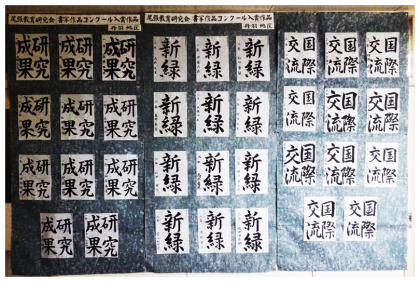 尾張教育研究会 書写作品コンクール入賞作品
丹羽地区
研究
成果
研究
成果
研究
成果
研究
成果
研究
成果
研究
成果
研究
成果
研究
成果
研究
成果
研究
成果
研究
成果
新緑
新緑
新緑
新緑
新緑
新緑
新緑
新緑
新緑
新緑
新緑
新緑
国際
交流
国際
交流
国際
交流
国際
交流
国際
交流
国際
交流
国際
交流
国際
交流
国際
交流
国際
交流
国際
交流